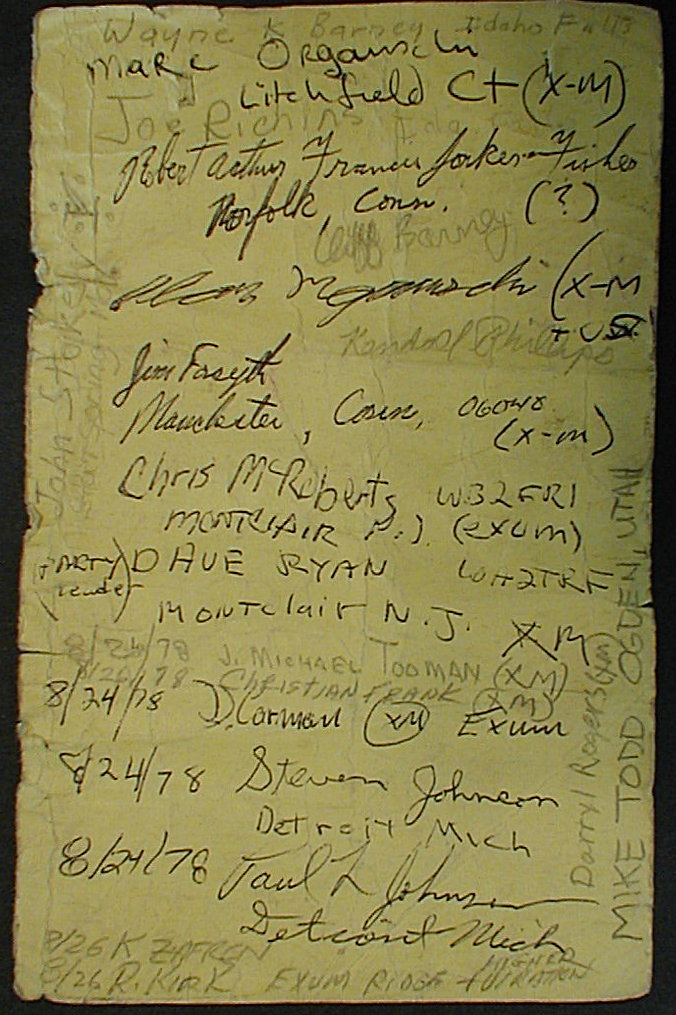 Wayne K Barney Idaho Falls
Marc Organschi
Litchfield Ct (X-M)
Joe Richins
Robert Arthur Francis Fisher
Norfolk, Conn. (?)
Cliff Barney
(X-M
Kendall Phillips
Jim Forsyth
Manchester, Conn, 06040
(X-M)
Chris McRoberts WB2FRI
MONTCLAIR N.J. (EXUM)
(PARTY leader) DAVE RYAN WA2TRF
Montclair N.J. XM
8/26/78 J. MICHAEL TODMAN (XM)
8/26/78 CHRISTIAN FRANK (XM)
8/24/78 D. Corman (XM) Exum
8/24/78 Steven Johnson
Detroit Mich
8/24/78 Paul L Johnson
Detroit Mich
8/26 K ZAFREN
8/26 R. KIRK EXUM RIDGE +
John
Darryl Rogers (XM)
MIKE TODD OGDEN, UTAH